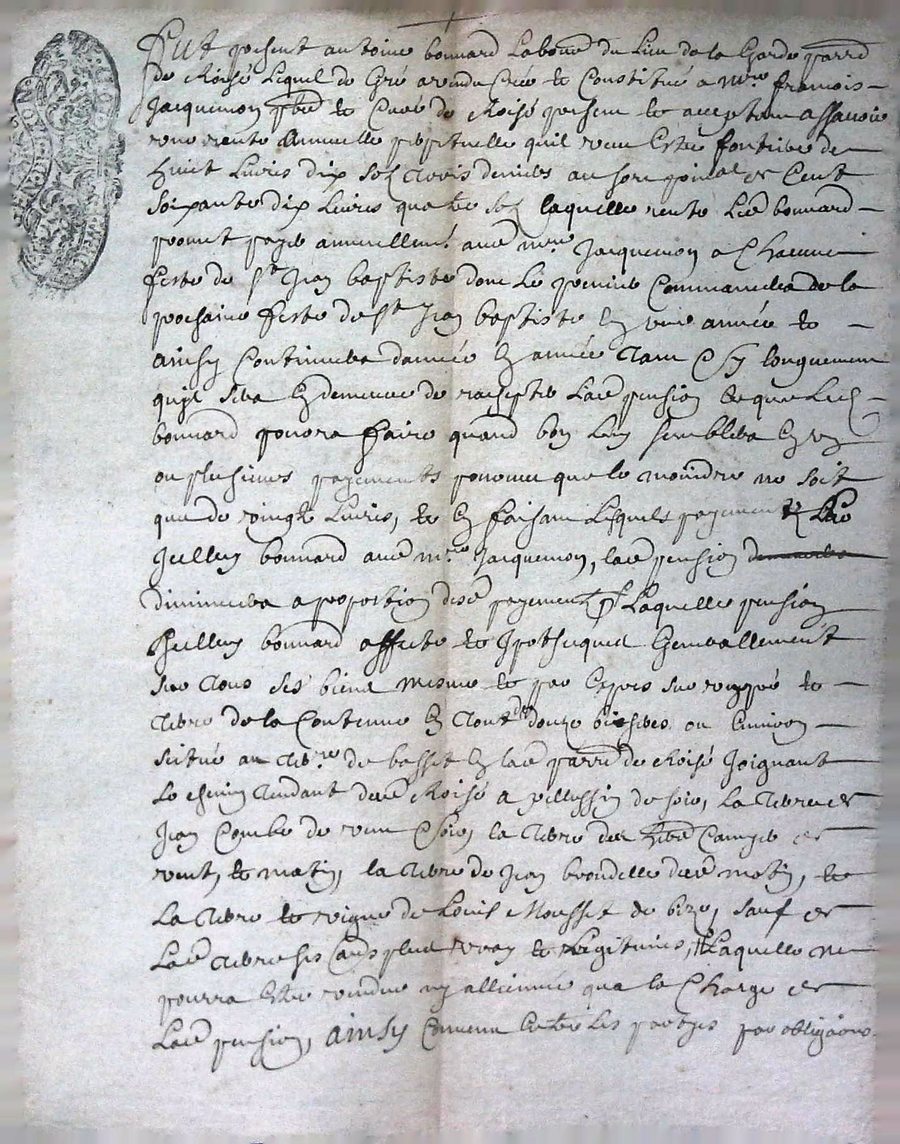 Fut present antoine bonnard Laboure du Lieu de la Garde parr
de Roisé Lequel de Gré a vendu Crée et Constitué a Mre francois
Jacquemon pbre et Curé de Roisé present et acceptant assavoir
une rente annuelle perpetuelle
huit Livres dix sols trois deniers au sort de Cent
soixante dix Livres quatre sols laquelle rente Led bonnard
promet payer annuellemt aud mre Jacquemon a Chacune
feste de st Jean baptiste dont Le premier Commancera de la
prochaine feste de st Jean baptiste En une année et
ainsy Continuera dannée En année tant Et sy longuement
quil sera En demeure de lad pension Ce que Led
bonnard pourra faire quand bon Luy semblera En un
ou plusieurs payements pourveu que le moindre ne soit
que de vingt Livres, et En faisant Lesquels payements
bonnard aud mre Jacquemon, lad pension
diminuera a proportion desd payement, Laquelle pension
bonnard affecte et Ipotheque Generallement
sur tous ses biens mesme et par Expres sur et
terre de la Contenue En tout douze ou Environ
situé au terre de basset En lad parr de Roisé Joignant
Le chemin tendant dud Roisé a pellussin de soir, la terre de
Jean Combe de soir, la terre des
vent, et matin, la terre de Jean dud matin, et
La terre et vigne de Louis Mousset de bize, sauf de
Lad terre ses Confins plus vray et Legitimes, Laquelle ne
pourra Estre vendue ny alliennée qua la Charge de
Lad pension, ainsy Convenu Entre Les parties par obligaons